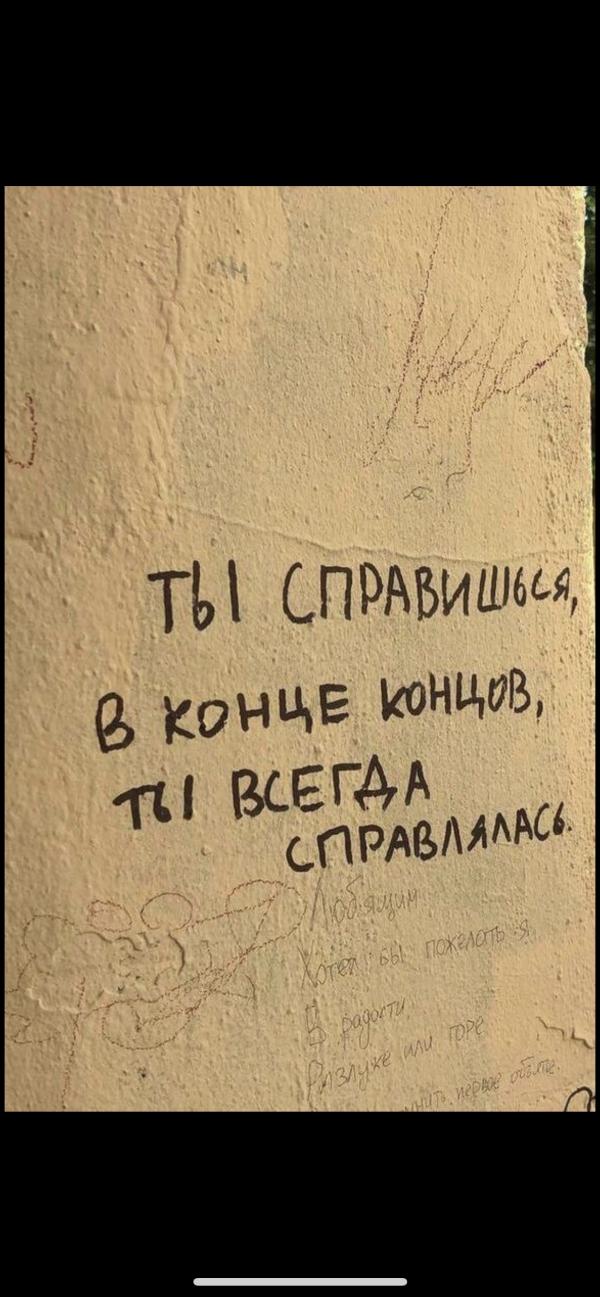 ТЫ СПРАВИШЬСЯ,
В КОНЦЕ КОНЦОВ,
ТЫ ВСЕГДА
СПРАВЛЯЛАСЬ.
Любящим
Хотел бы пожелать я
В радости,
Разлуке или горе
первое